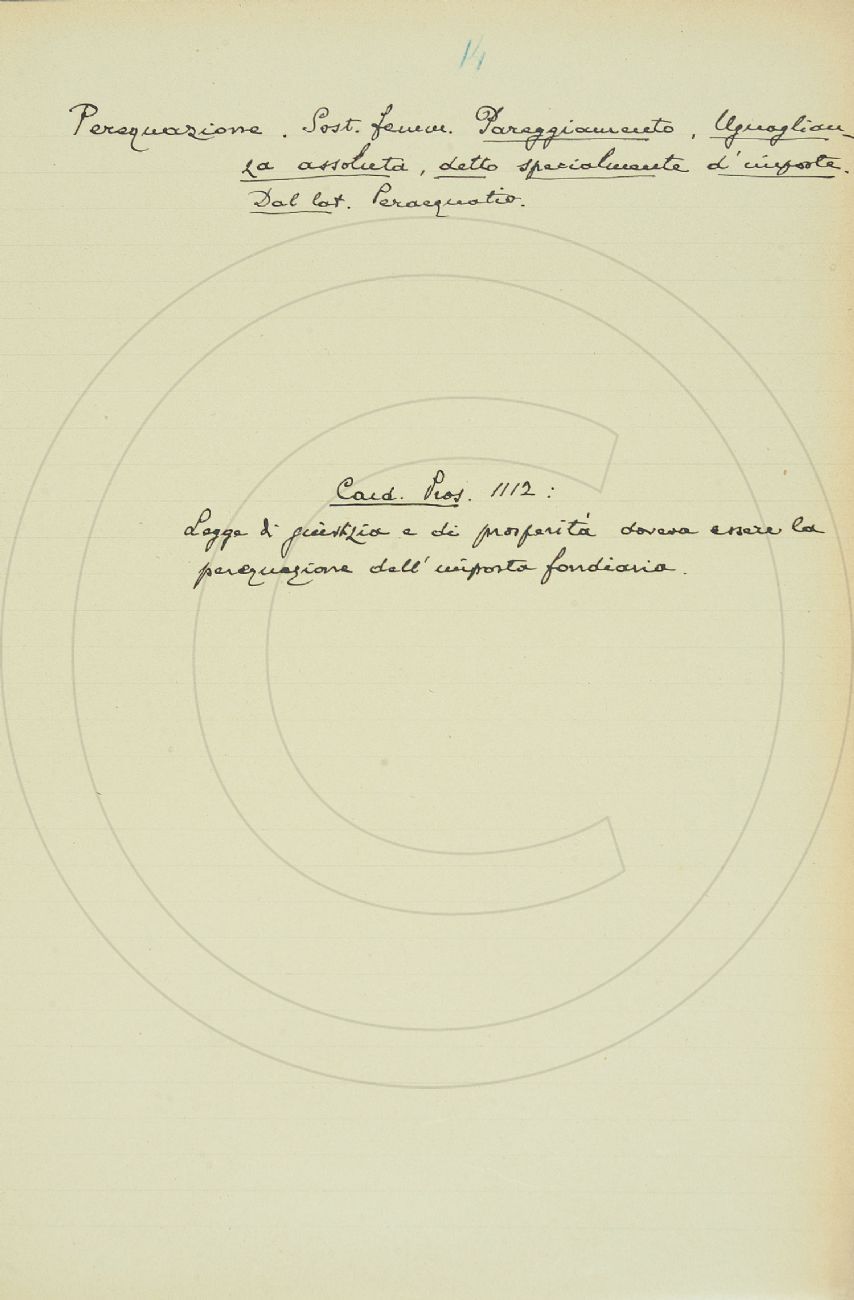 14
Perequazione. Sost. femm. Pareggiamento, Uguaglian-
za assoluta, detto specialmente d'imposte.
Dal lat. Peraequatio.
Card. Pros. 1112:
Legge di giustizia e di prosperità doveva essere la
perequazione dell'imposta fondiaria.